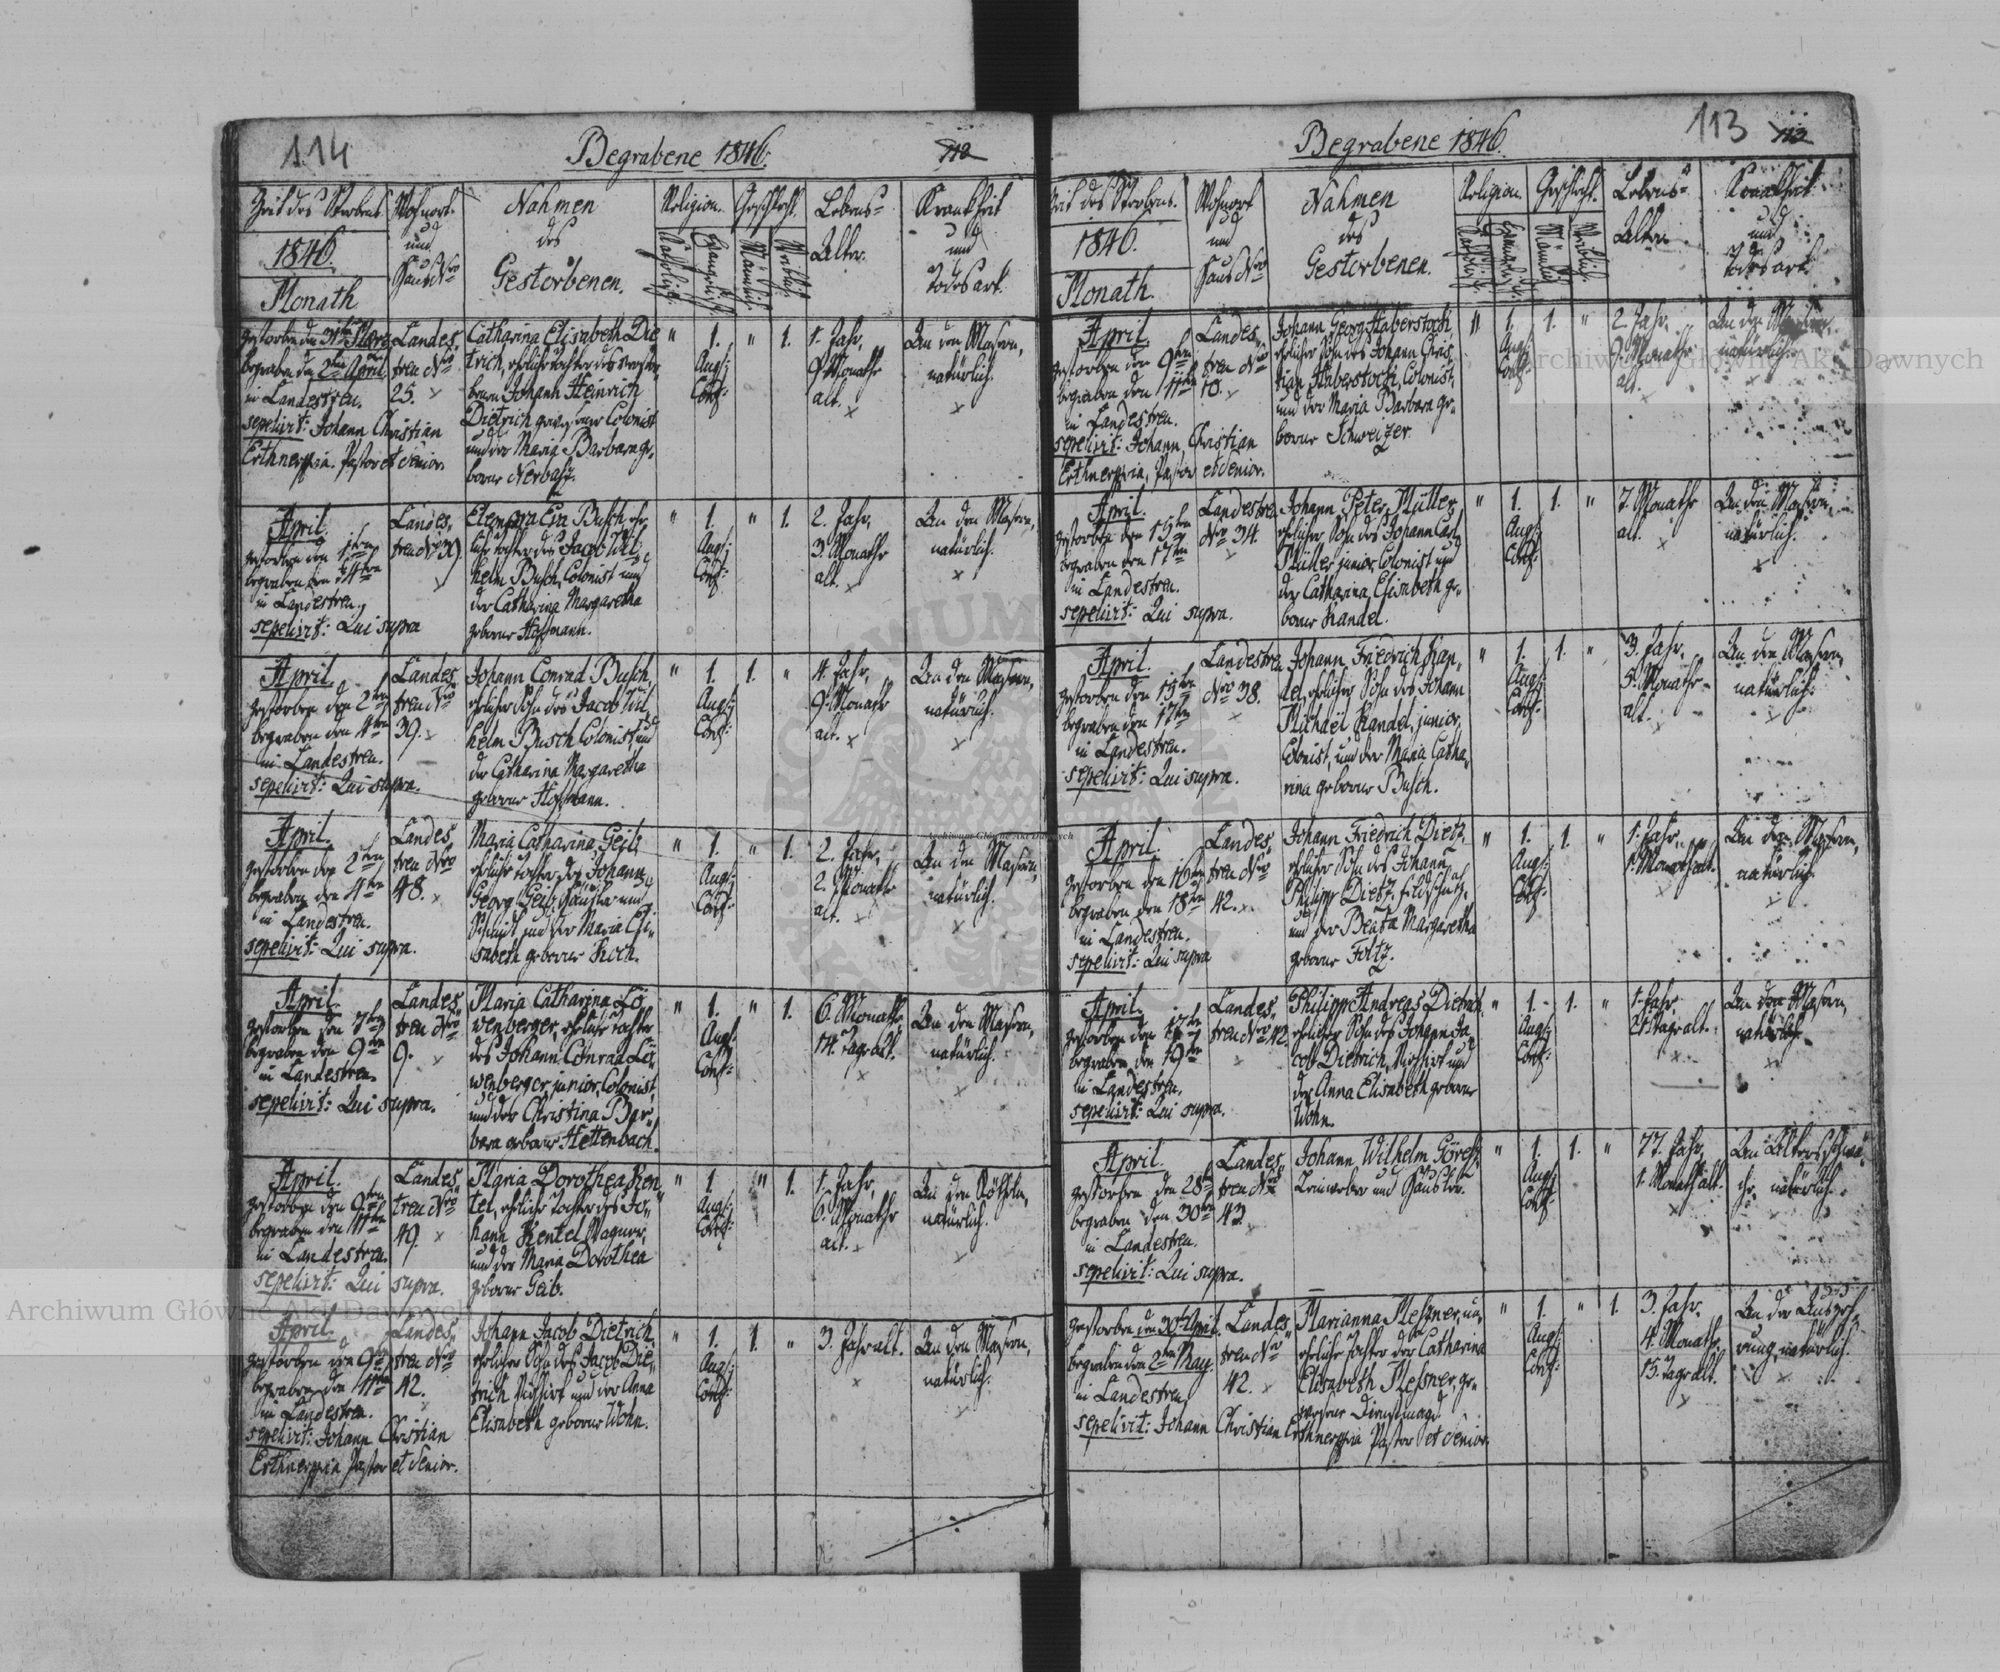 114
Begrabene 1846.
112
Zeit des Sterbens
1846.
Monath
Wohnort
und
Haus Nro
Nahmen
des
Gestorbenen.
Religion.
Katholisch
Evangelisch
Geschlecht.
Männlich
Weiblich
Lebens=
Alter.
Krankheit
und
Todesart.
gestorben den 31ten März
begraben den 2ten April
in Landestreu.
sepelivit: Johann Christian
Pastor et Senior.
Landes,
treu Nro
25.
Catharina Elisabeth Die
trich, ehliche Tochter des verstor,
benen Johann Heinrich
Dietrich gewesener Colonist
und der Maria Barbara ge,
borne Nerbaß.
" 1. " 1.
Augs:
Conf:
1. Jahr,
9. Monathe
alt.
An den Masern,
natürlich.
April.
gestorben den 1ten
begraben den 4ten
in Landestreu,
sepelivit: Qui supra
Landes,
treu Nro 39.
Eleonora Eva Busch, eh,
liche Tochter des Jacob Wil,
helm Busch, Colonist und
der Catharina Margaretha
geborne Hoffmann.
" 1. " 1.
Augs:
Conf:
2. Jahr,
3. Monathe
alt.
An den Masern,
natürlich.
April.
gestorben den 2ten
begraben den 4ten
in Landestreu.
sepelivit: Qui supra.
Landes,
treu Nro
39.
Johann Conrad Busch,
ehlicher Sohn des Jacob Wil,
helm Busch Colonist und
der Catharina Margaretha
geborne Hoffmann.
" 1. 1. "
Augs:
Conf:
4. Jahr,
9. Monathe
alt.
An den Masern,
natürlich.
April.
gestorben den 2ten
begraben den 4ten
in Landestreu.
sepelivit: Qui supra.
Landes,
treu Nro
48.
Maria Catharina Geib,
ehliche Tochter des Johann
Georg Geib, Häusler und
Schmidt und der Maria Eli,
sabeth geborne Koch.
" 1. " 1.
Augs:
Conf:
2. Jahr,
2. Monathe
alt.
An den Masern,
natürlich.
April.
gestorben den 7ten
begraben den 9ten
in Landestreu.
sepelivit: Qui supra.
Landes,
treu Nro
9.
Maria Catharina Lö,
wenberger, ehliche Tochter
des Johann Conrad Lö,
wenberger, junior, Colonist,
und der Christina Bar,
bara geborne Hettenbach.
" 1. " 1.
Augs:
Conf:
6. Monathe
14. Tage alt.
An den Masern,
natürlich.
April.
gestorben den 9ten
begraben den 11ten
in Landestreu.
sepelivit: Qui supra.
Landes,
treu Nro
49.
Maria Dorothea Ken
tel, ehliche Tochter des Jo,
hann Kentel, Wagner,
und der Maria Dorothea
geborne Geib.
" 1. " 1.
Augs:
Conf:
1. Jahr,
6. Monathe
alt.
An den Rötheln,
natürlich.
April.
gestorben den 9ten
begraben den 11ten
in Landestreu.
sepelivit: Johann Christian
Pastor et Senior.
Landes,
treu Nro
42.
Johann Jacob Dietrich,
ehlicher Sohn des Jacob Die,
trich Viehhirt und der Anna
Elisabeth geborne Wohn.
" 1. 1. "
Augs:
Conf:
3. Jahr alt.
An den Masern,
natürlich.
113
112
Begrabene 1846.
Zeit des Sterbens.
1846.
Monath.
Wohnort
und
Haus Nro
Nahmen
des
Gestorbenen.
Religion.
Geschlecht.
Lebens=
Alter.
Krankheit
und
Todesart.
April.
gestorben den 9ten
begraben den 11ten
in Landestreu.
sepelivit: Johann Christian
Pastor et Senior.
Landes,
treu Nro
10.
Johann Georg Haberstock,
ehlicher Sohn des Johann Chris,
tian Haberstock, Colonist,
und der Maria Barbara ge,
borne Schweizer.
" 1. 1. "
Augs:
Conf:
2. Jahr,
9. Monathe
alt.
An den Masern,
natürlich.
April.
gestorben den 15ten
begraben den 17ten
in Landestreu.
sepelivit: Qui supra.
Landestreu
Nro 34.
Johann Peter Müller,
ehlicher Sohn des Johann Carl
Müller junior, Colonist und
der Catharina Elisabeth ge,
borne Kandel.
" 1. 1. "
Augs:
Conf:
7. Monathe
alt.
An den Masern,
natürlich.
April.
gestorben den 15ten
begraben den 17ten
in Landestreu.
sepelivit: Qui supra.
Landestreu
Nro 38.
Johann Friedrich Kan,
del, ehlicher Sohn des Johann
Michael Kandel, junior,
Colonist, und der Maria Catha,
rina geborne Busch.
" 1. 1. "
Augs:
Conf:
3. Jahr,
5. Monathe
alt.
An den Masern,
natürlich.
April.
gestorben den 16ten
begraben den 18ten
in Landestreu.
sepelivit: Qui supra
Landes,
treu Nro
42.
Johann Friedrich Dietz,
ehlicher Sohn des Johann
Philipp Dietz, Feldschütz,
und der Beata Margaretha
geborne Foltz.
" 1. 1. "
Augs:
Conf:
1. Jahr,
1. Monath alt.
An den Masern,
natürlich.
April.
gestorben den 17ten
begraben den 19ten
in Landestreu.
sepelivit: Qui supra.
Landes,
treu Nro 42
Philipp Andreas Dietrich
ehlicher Sohn des Johann Ja,
cob Dietrich, Viehhirt und
der Anna Elisabeth geborne
Wohn.
" 1. 1. "
Augs:
Conf:
1. Jahr,
21. Tage alt.
An den Masern,
natürlich.
April.
gestorben den 28ten
begraben den 30ten
in Landestreu.
sepelivit: Qui supra.
Landes,
treu Nro
43.
Johann Wilhelm Göres,
Leinweber und Häusler.
" 1. 1. "
Augs:
Conf:
77. Jahr,
1. Monath alt.
An Altersschwä,
che, natürlich.
gestorben den 30ten April.
begraben den 2ten May.
in Landestreu,
sepelivit: Johann Christian
Pastor et Senior.
Landes,
treu Nro
42.
Marianna Meßner, un,
ehliche Tochter der Catharina
Elisabeth Meßner, ge,
wesene Dienstmagd
" 1. " 1.
Augs:
Conf:
3. Jahr.
4. Monathe
15. Tage alt.
An der Auszeh,
rung, natürlich.
Archiwum Główne Akt Dawnych
Archiwum Główne Akt Dawnych
Archiwum Główne Akt Dawnych